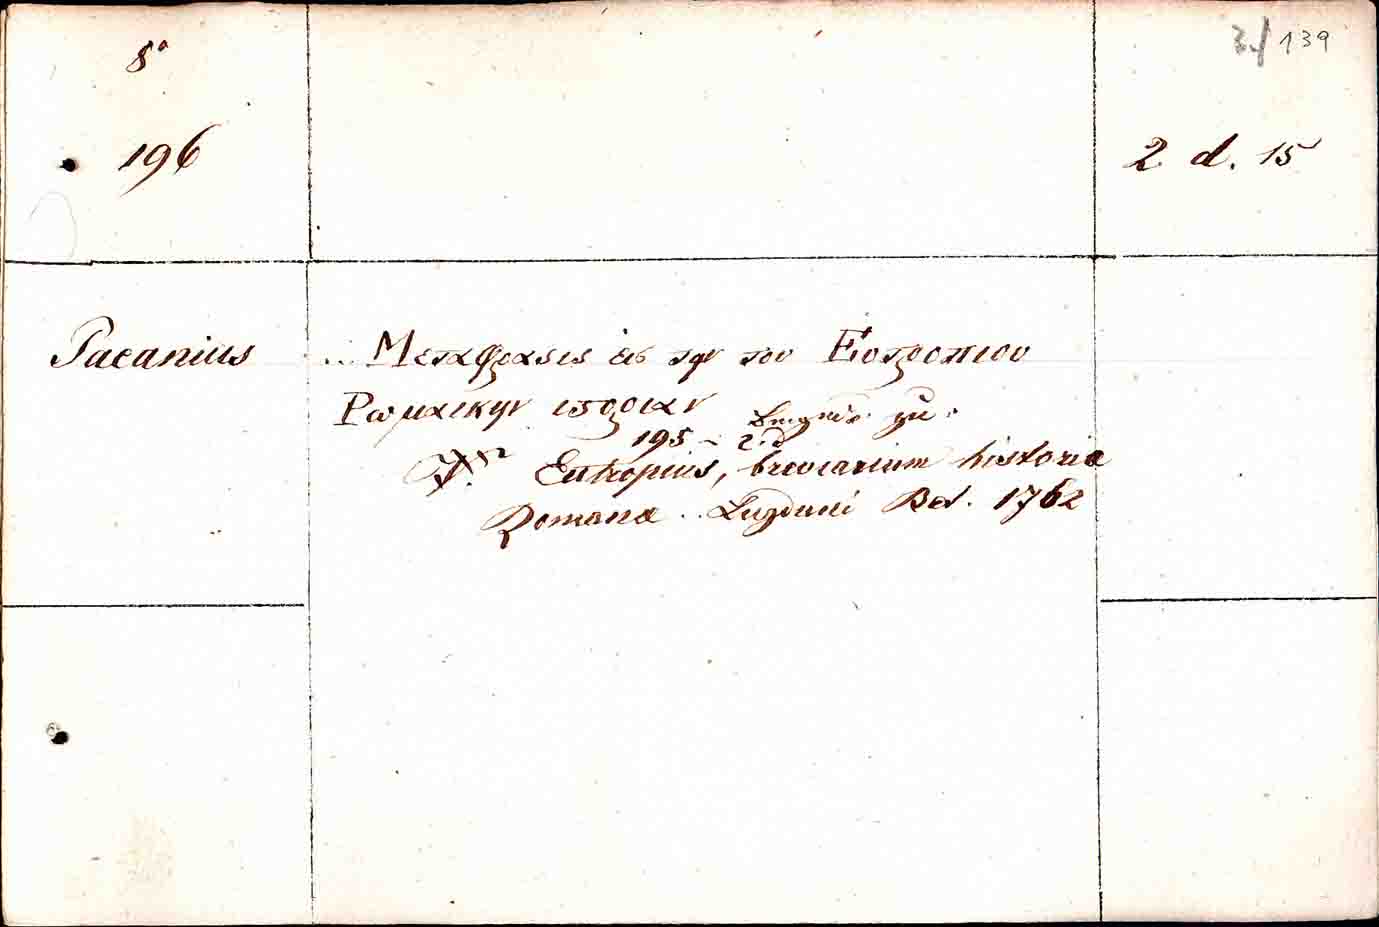 8°
3./139
196
2 d. 15
Paeanius
... Μεταφρασις εἰς την του Ευτροπιου
Ρωμαικην ιστοριαν
195 - 2.d
Eutropius, breviarium historia
Romana .. Lugduni Bat. 1762